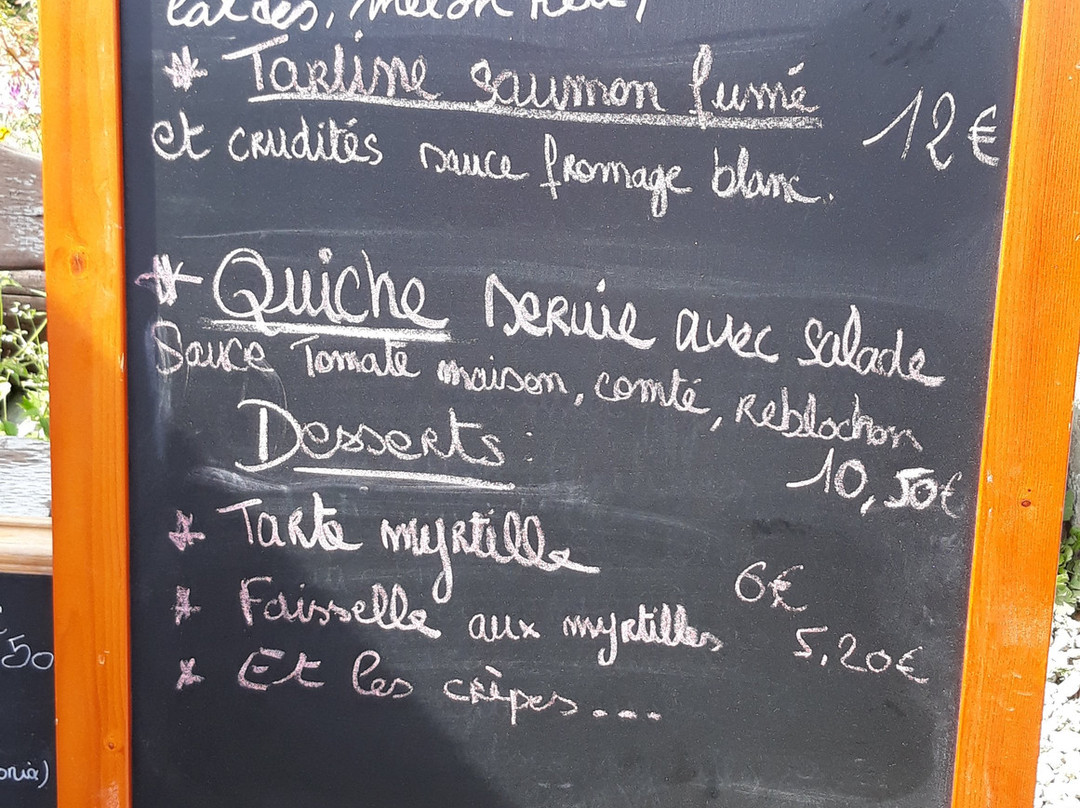 * Tartine saumon fumé
et crudités sauce fromage blanc. 12€
* Quiche servie avec salade
Sauce Tomate maison, comté, Reblochon
10,50€
Desserts :
* Tarte myrtille 6€
* Faisselle aux myrtilles 5,20€
* Et les crêpes....
50